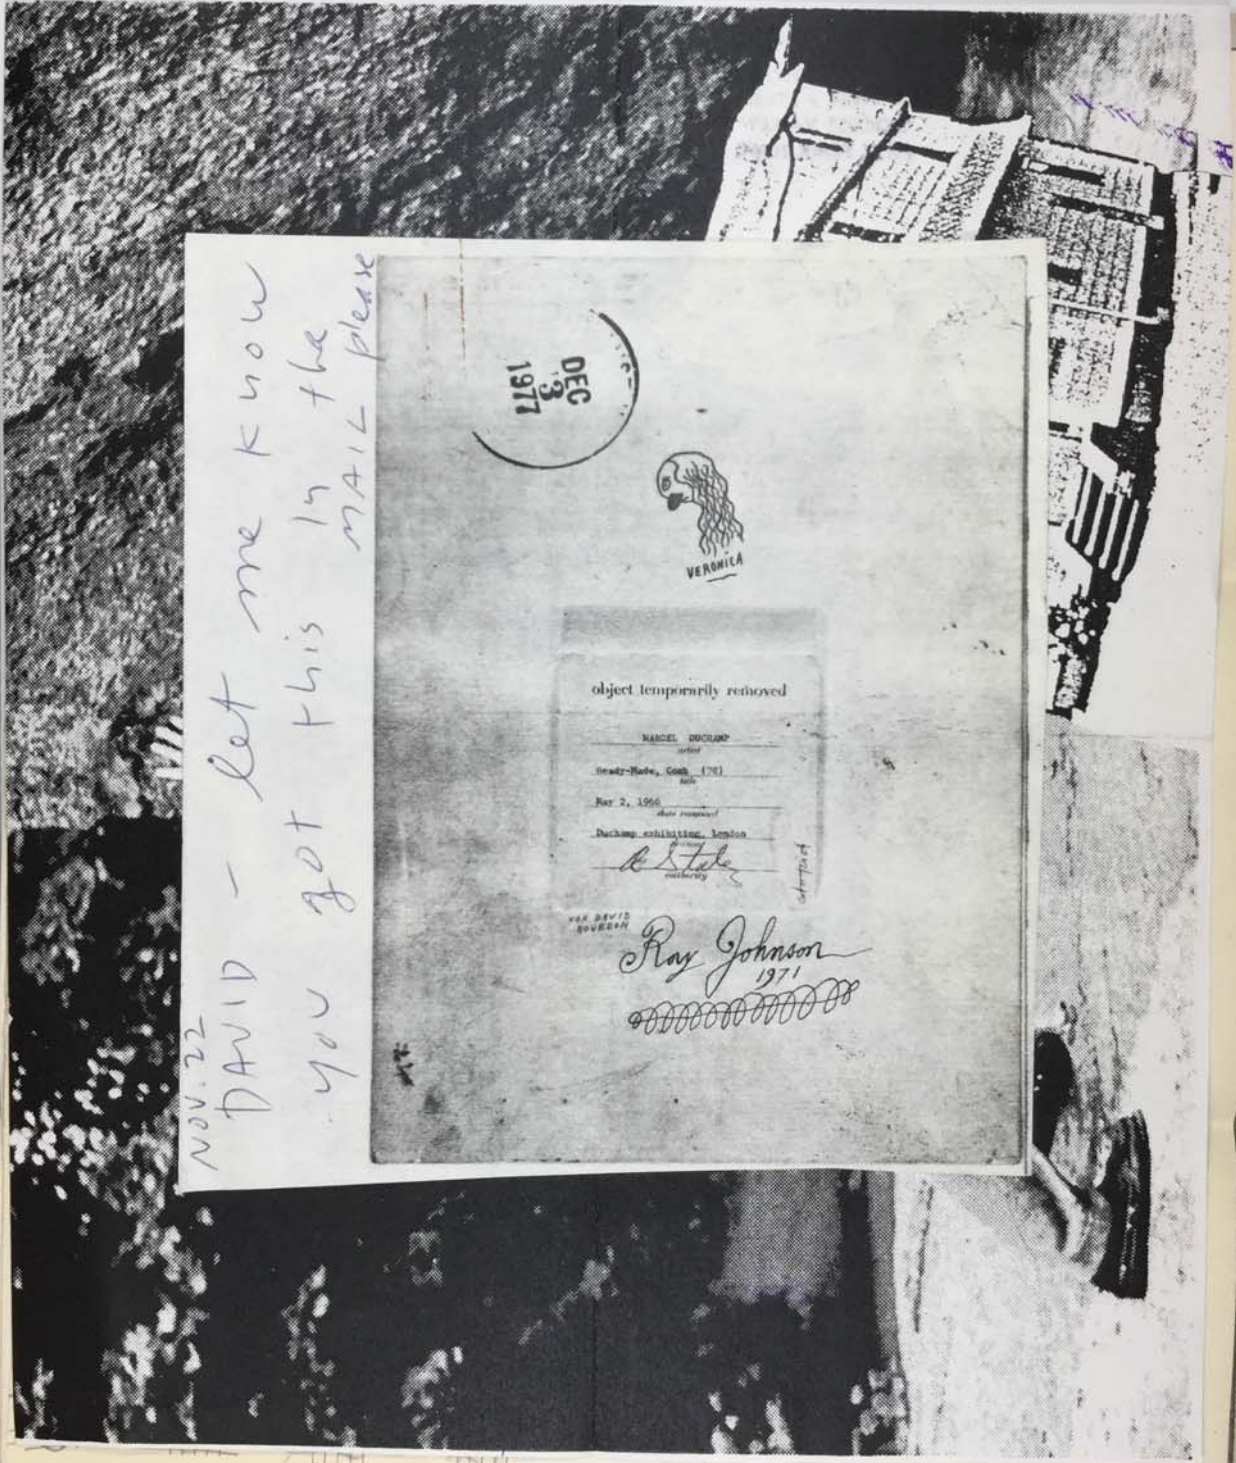 NOV. 22
DAVID - let me know
you got this in the
MAIL please
DEC
3
1977
VERONICA
object temporarily removed
MARCEL DUCHAMP
artist
Ready-Made, Comb (70)
title
May 2, 1966
date removed
Duchamp exhibiting, London
authority
DAVID
BOURDON
Ray Johnson
1971